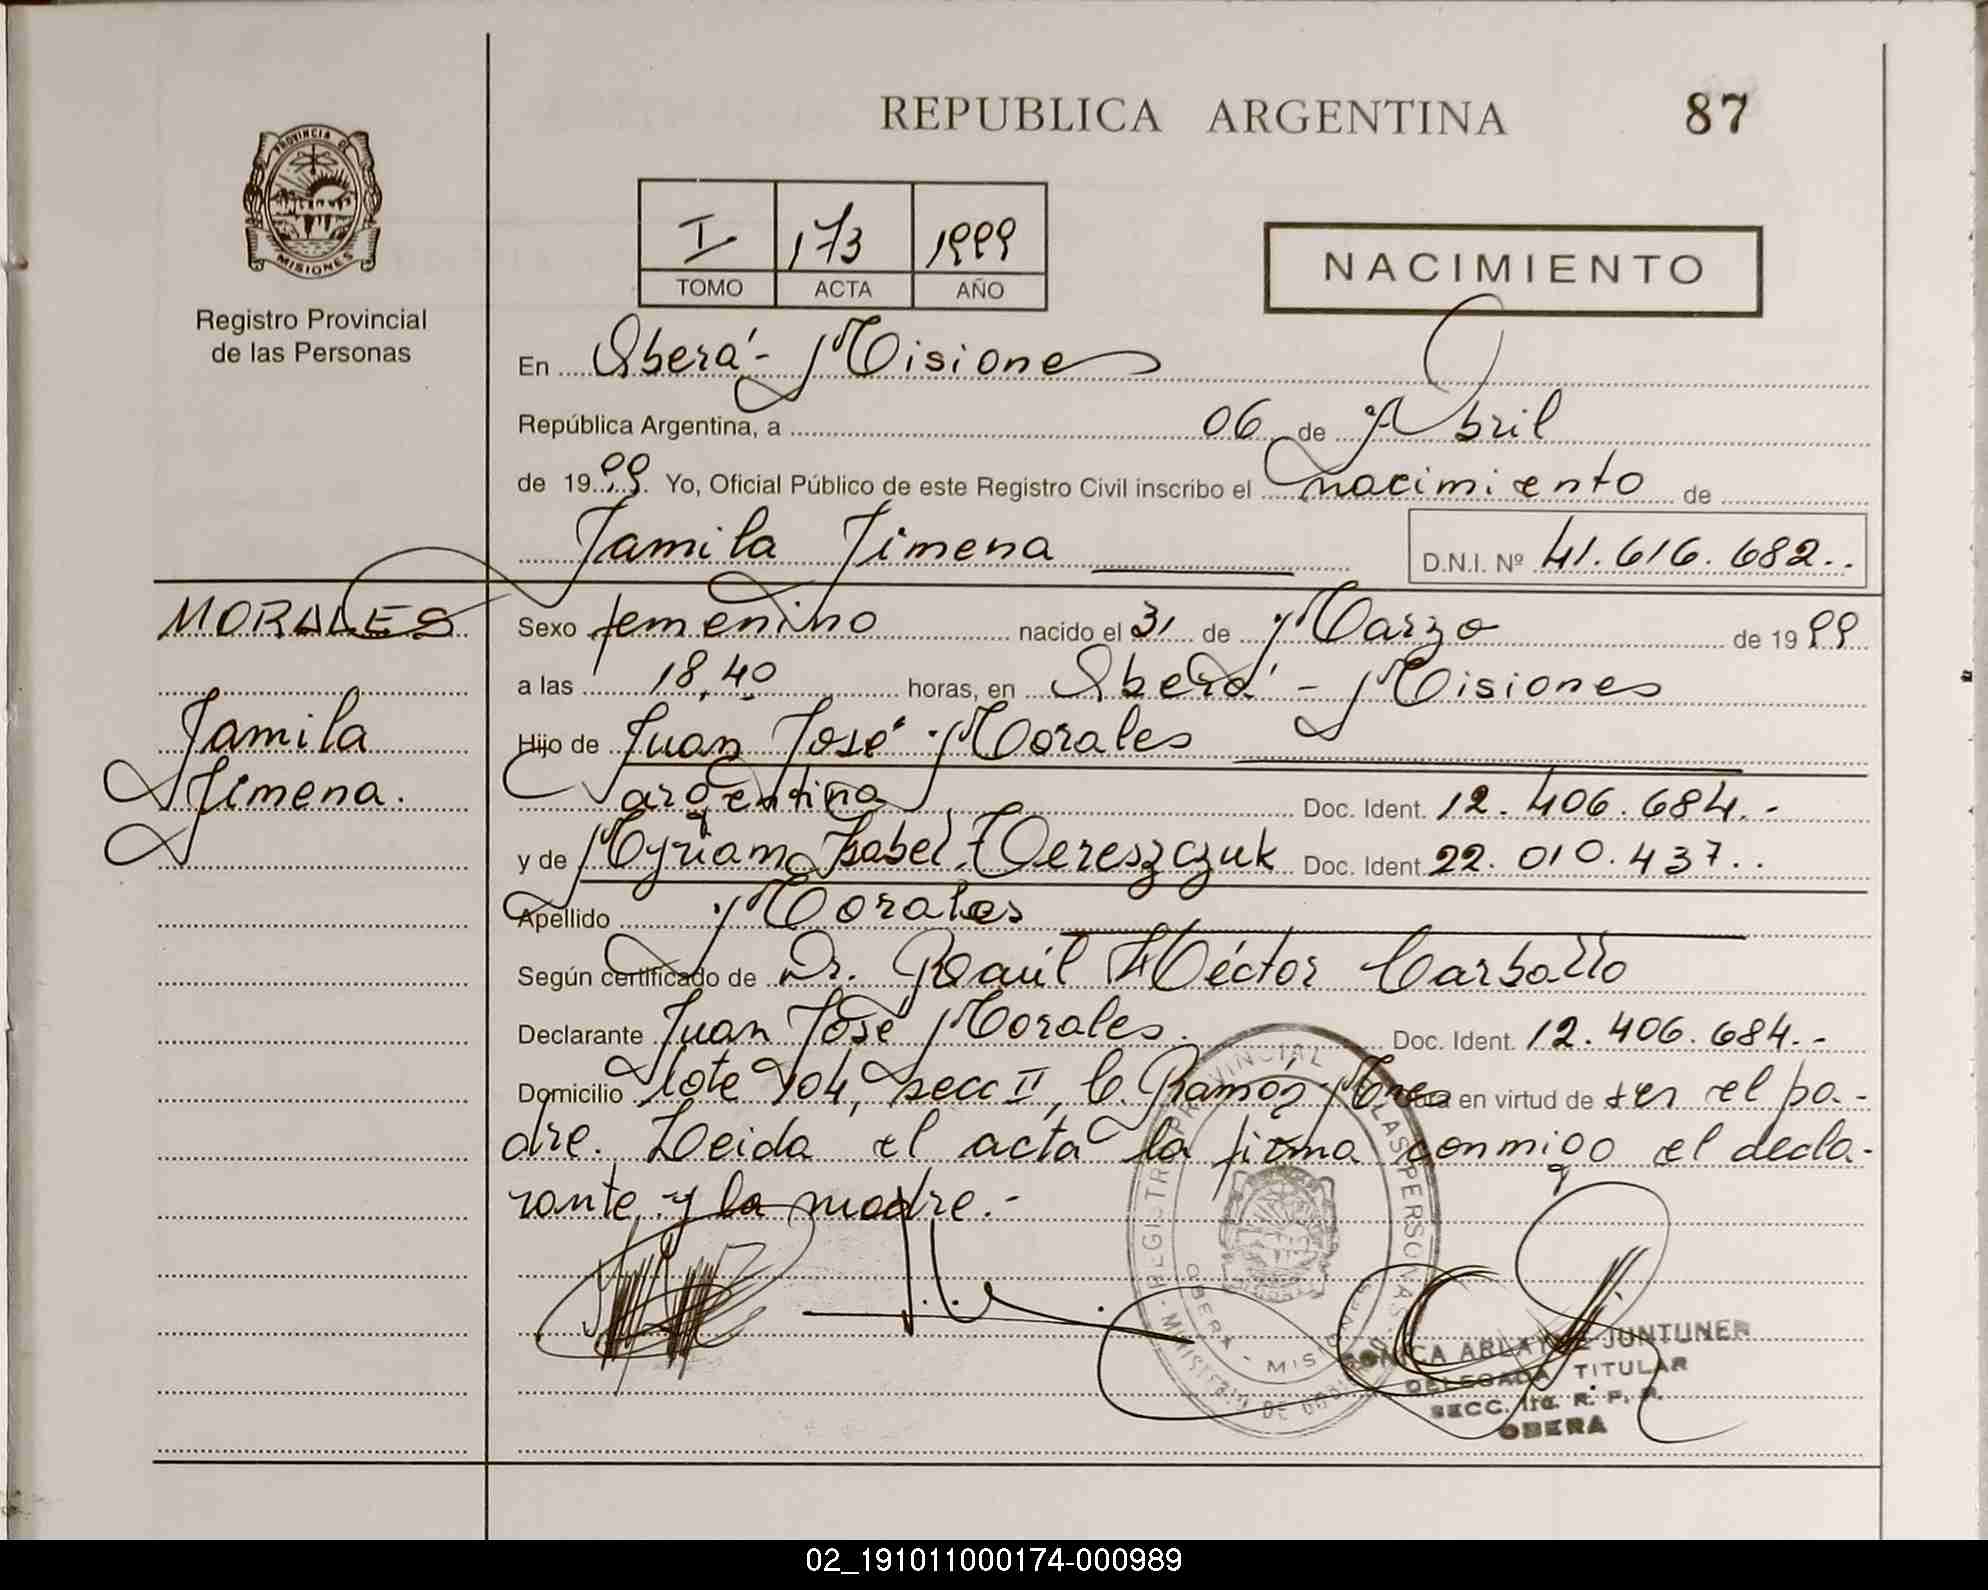 REPUBLICA ARGENTINA
87
PROVINCIA DE
MISIONES
Registro Provincial
de las Personas
I 173 1999
TOMO ACTA AÑO
NACIMIENTO
En Oberá - Misiones
República Argentina, a 06 de Abril
de 1999. Yo, Oficial Público de este Registro Civil inscribo el nacimiento de
Jamila Jimena D.N.I. Nº 41.616.682..
MORALES
Jamila
Jimena.
Sexo femenino nacido el 31 de Marzo de 1999
a las 18,40 horas, en Oberá - Misiones
Hijo de Juan José Morales
argentina Doc. Ident. 12.406.684.-
y de Myriam Isabel Tereszczuk Doc. Ident. 22.010.437..
Apellido Morales
Según certificado de Dr. Raúl Héctor Carballo
Declarante Juan José Morales. Doc. Ident. 12.406.684.-
Domicilio lote 104, secc II, C. Ramón en virtud de ser el pa-
dre. Leida el acta la firma conmigo el decla-
rante y la madre.-
REGISTRO PROVINCIAL LAS PERSONAS
MINISTERIO DE
OBERA - MISIONES
JUNTUNEN
DELEGADA TITULAR
SECC. 1ra. R. P. P.
OBERA
02_191011000174-000989